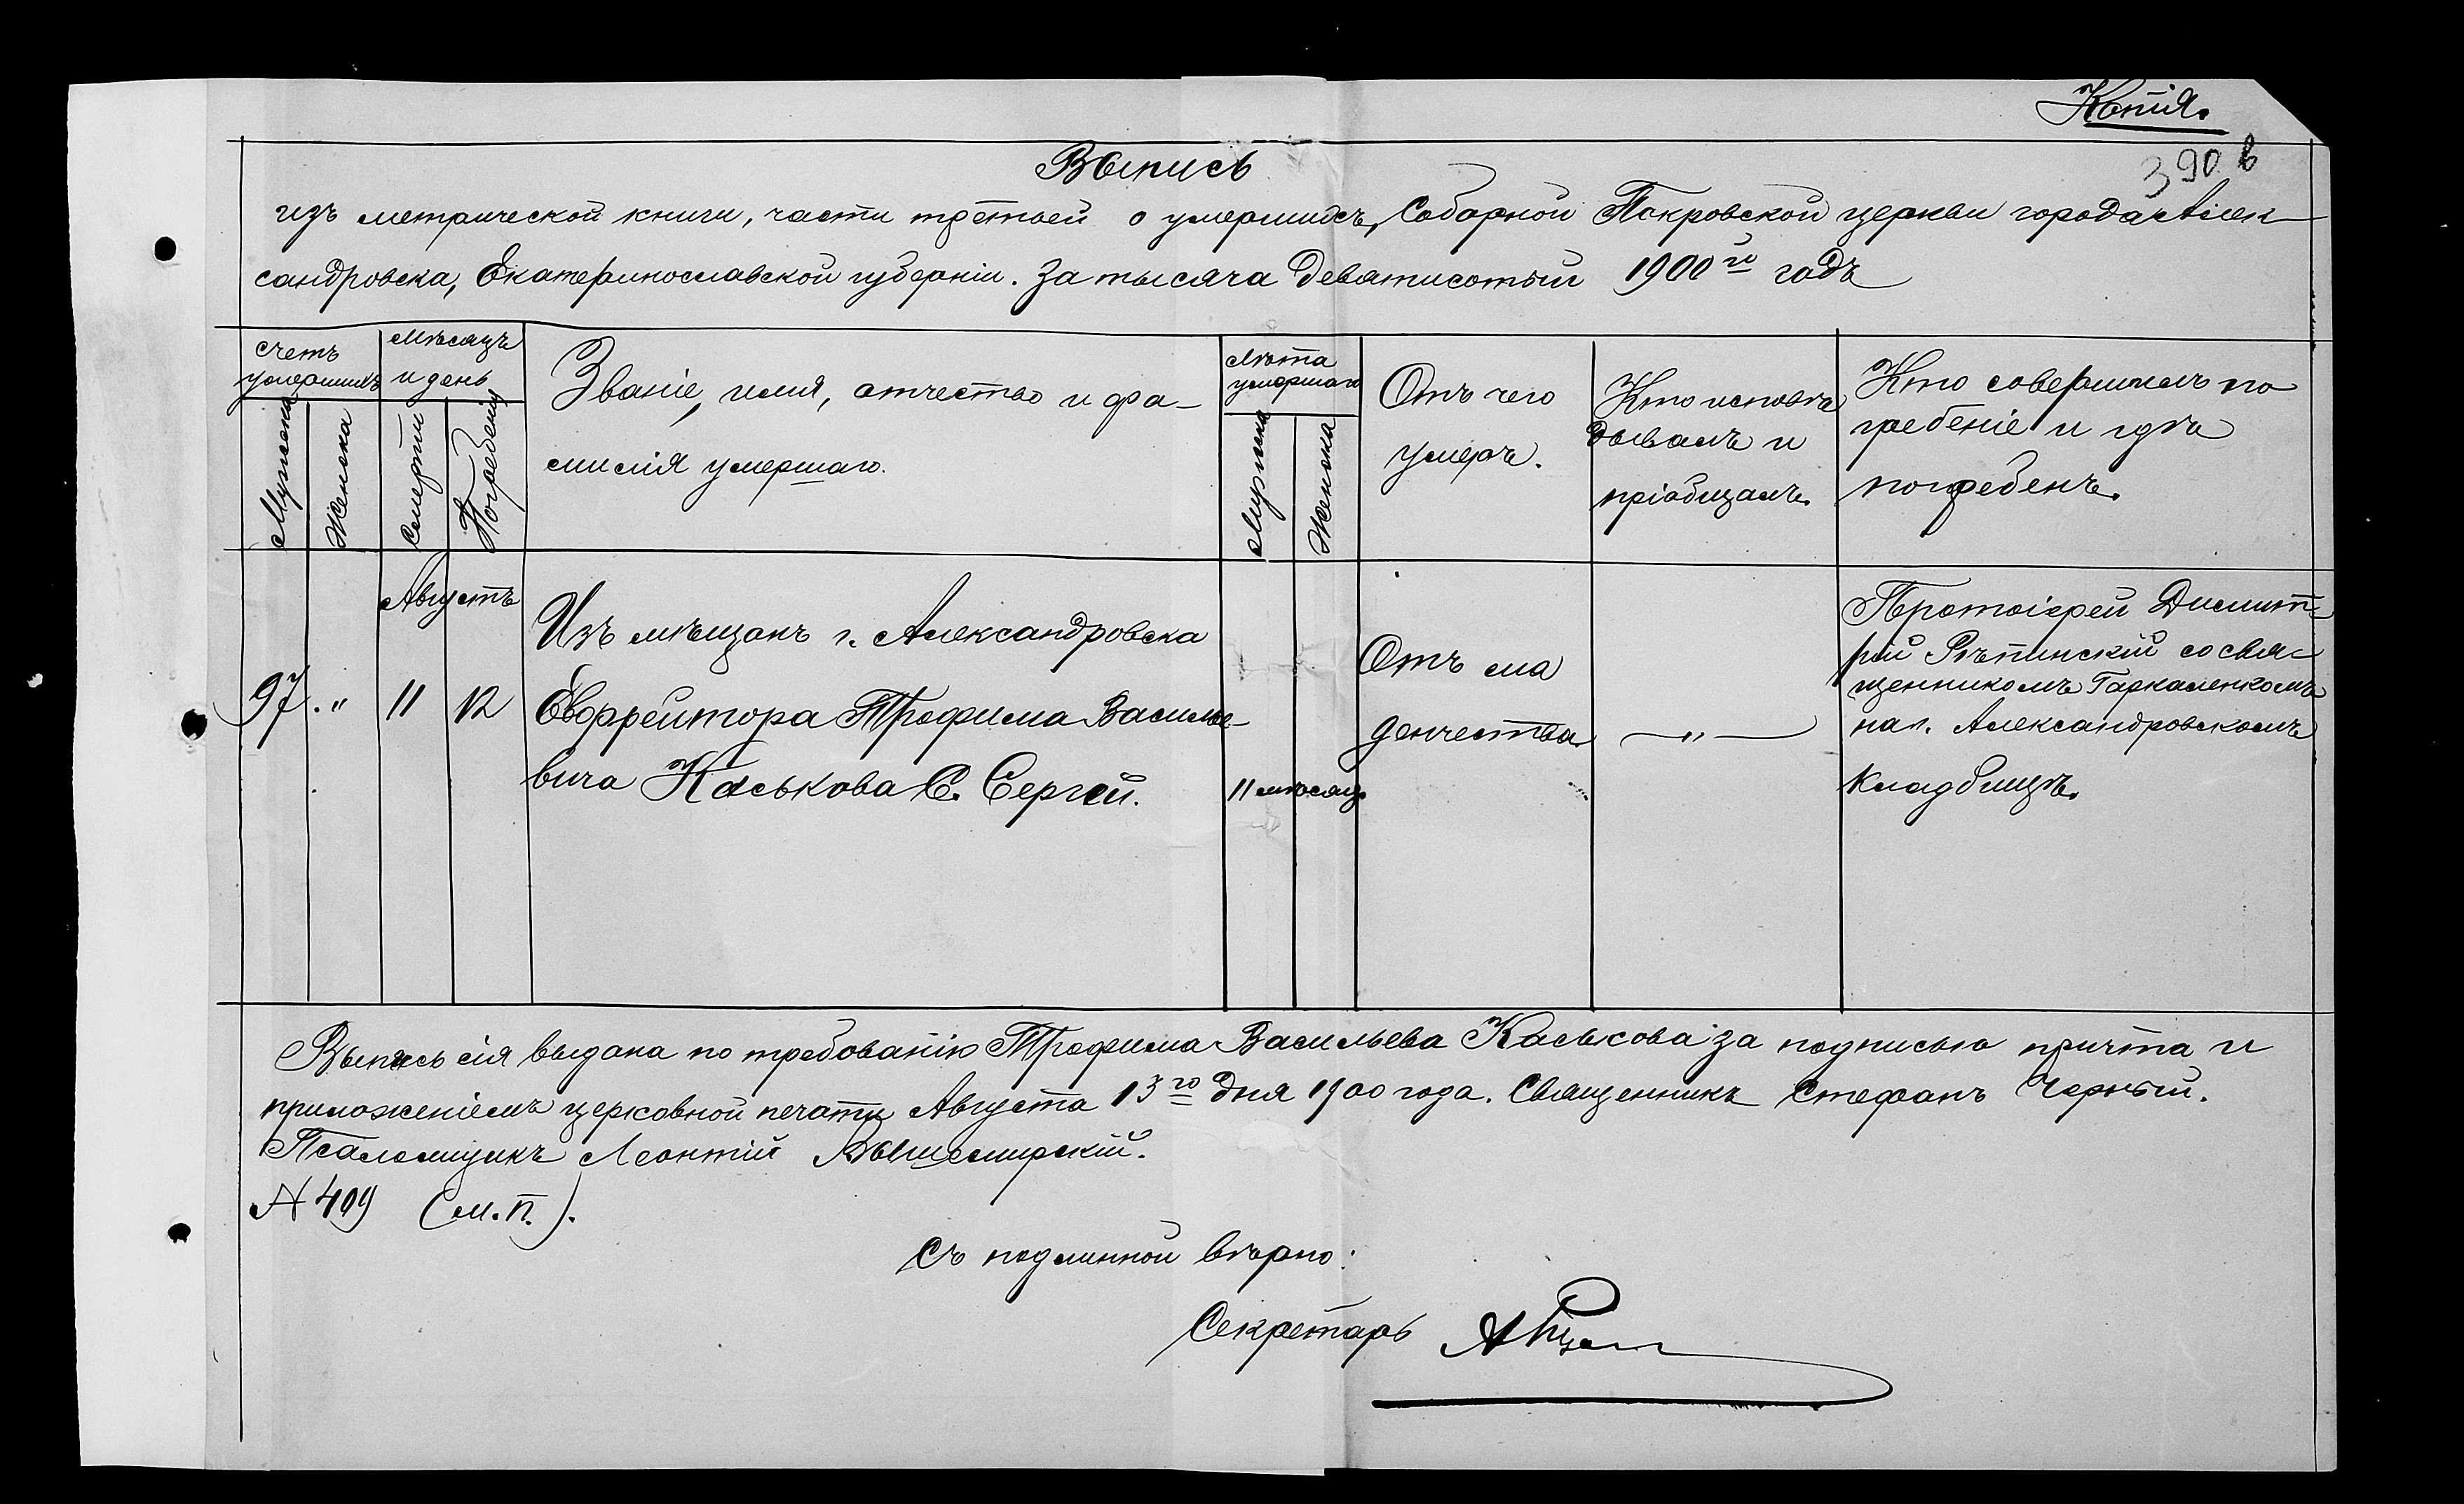 Копія.
390 в
Выпись
изъ метрической книги, части третьей о умершихъ, Соборной Покровской церкви города Алек
сандровска, Екатеринославской губерніи. За тысяча девятисотый 1900й годъ
Счетъ умершихъ
Мужеска
Женска
Мѣсяцъ и день
Смерти
Погребенія
Званіе, имя, отчество и фа-
милія умершаго.
Лѣта умершаго
Мужска
Женска
Отъ чего
умеръ.
Кто исповѣ
дывалъ и
пріобщалъ.
Кто совершилъ по
гребеніе и гдѣ
погребенъ.
Августъ
97. " 11 12
Изъ мѣщанъ г. Александровска
Ефрейтора Трофима Василье-
вича Каськова С. Сергѣй.
11 мѣсяц.
Отъ мла
денчества.
—"—
Протоіерей Димит-
рій Рѣпинскій со свя-
щенникомъ Гаркаленкомъ
на г. Александровскомъ
кладбищѣ.
Выпись сія выдана по требованію Трофима Васильева Каськова за подписью причта и
приложеніемъ церковной печати Августа 13го дня 1900 года. Священникъ Стефанъ Черный.
Псаломщикъ Леонтій Вышемирскій.
№ 409 (М.П.).
Съ подлинной вѣрно:
Секретарь